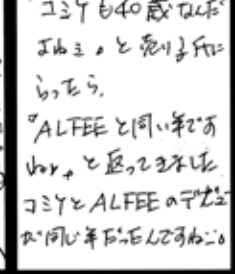 コミケも40歳なんだ
よねぇ。と売り子氏に
らったら、
"ALFEEと同い年です
ねぇ。と返ってきました
コミケとALFEEのデビュー
が同じ年だったんですねこ。